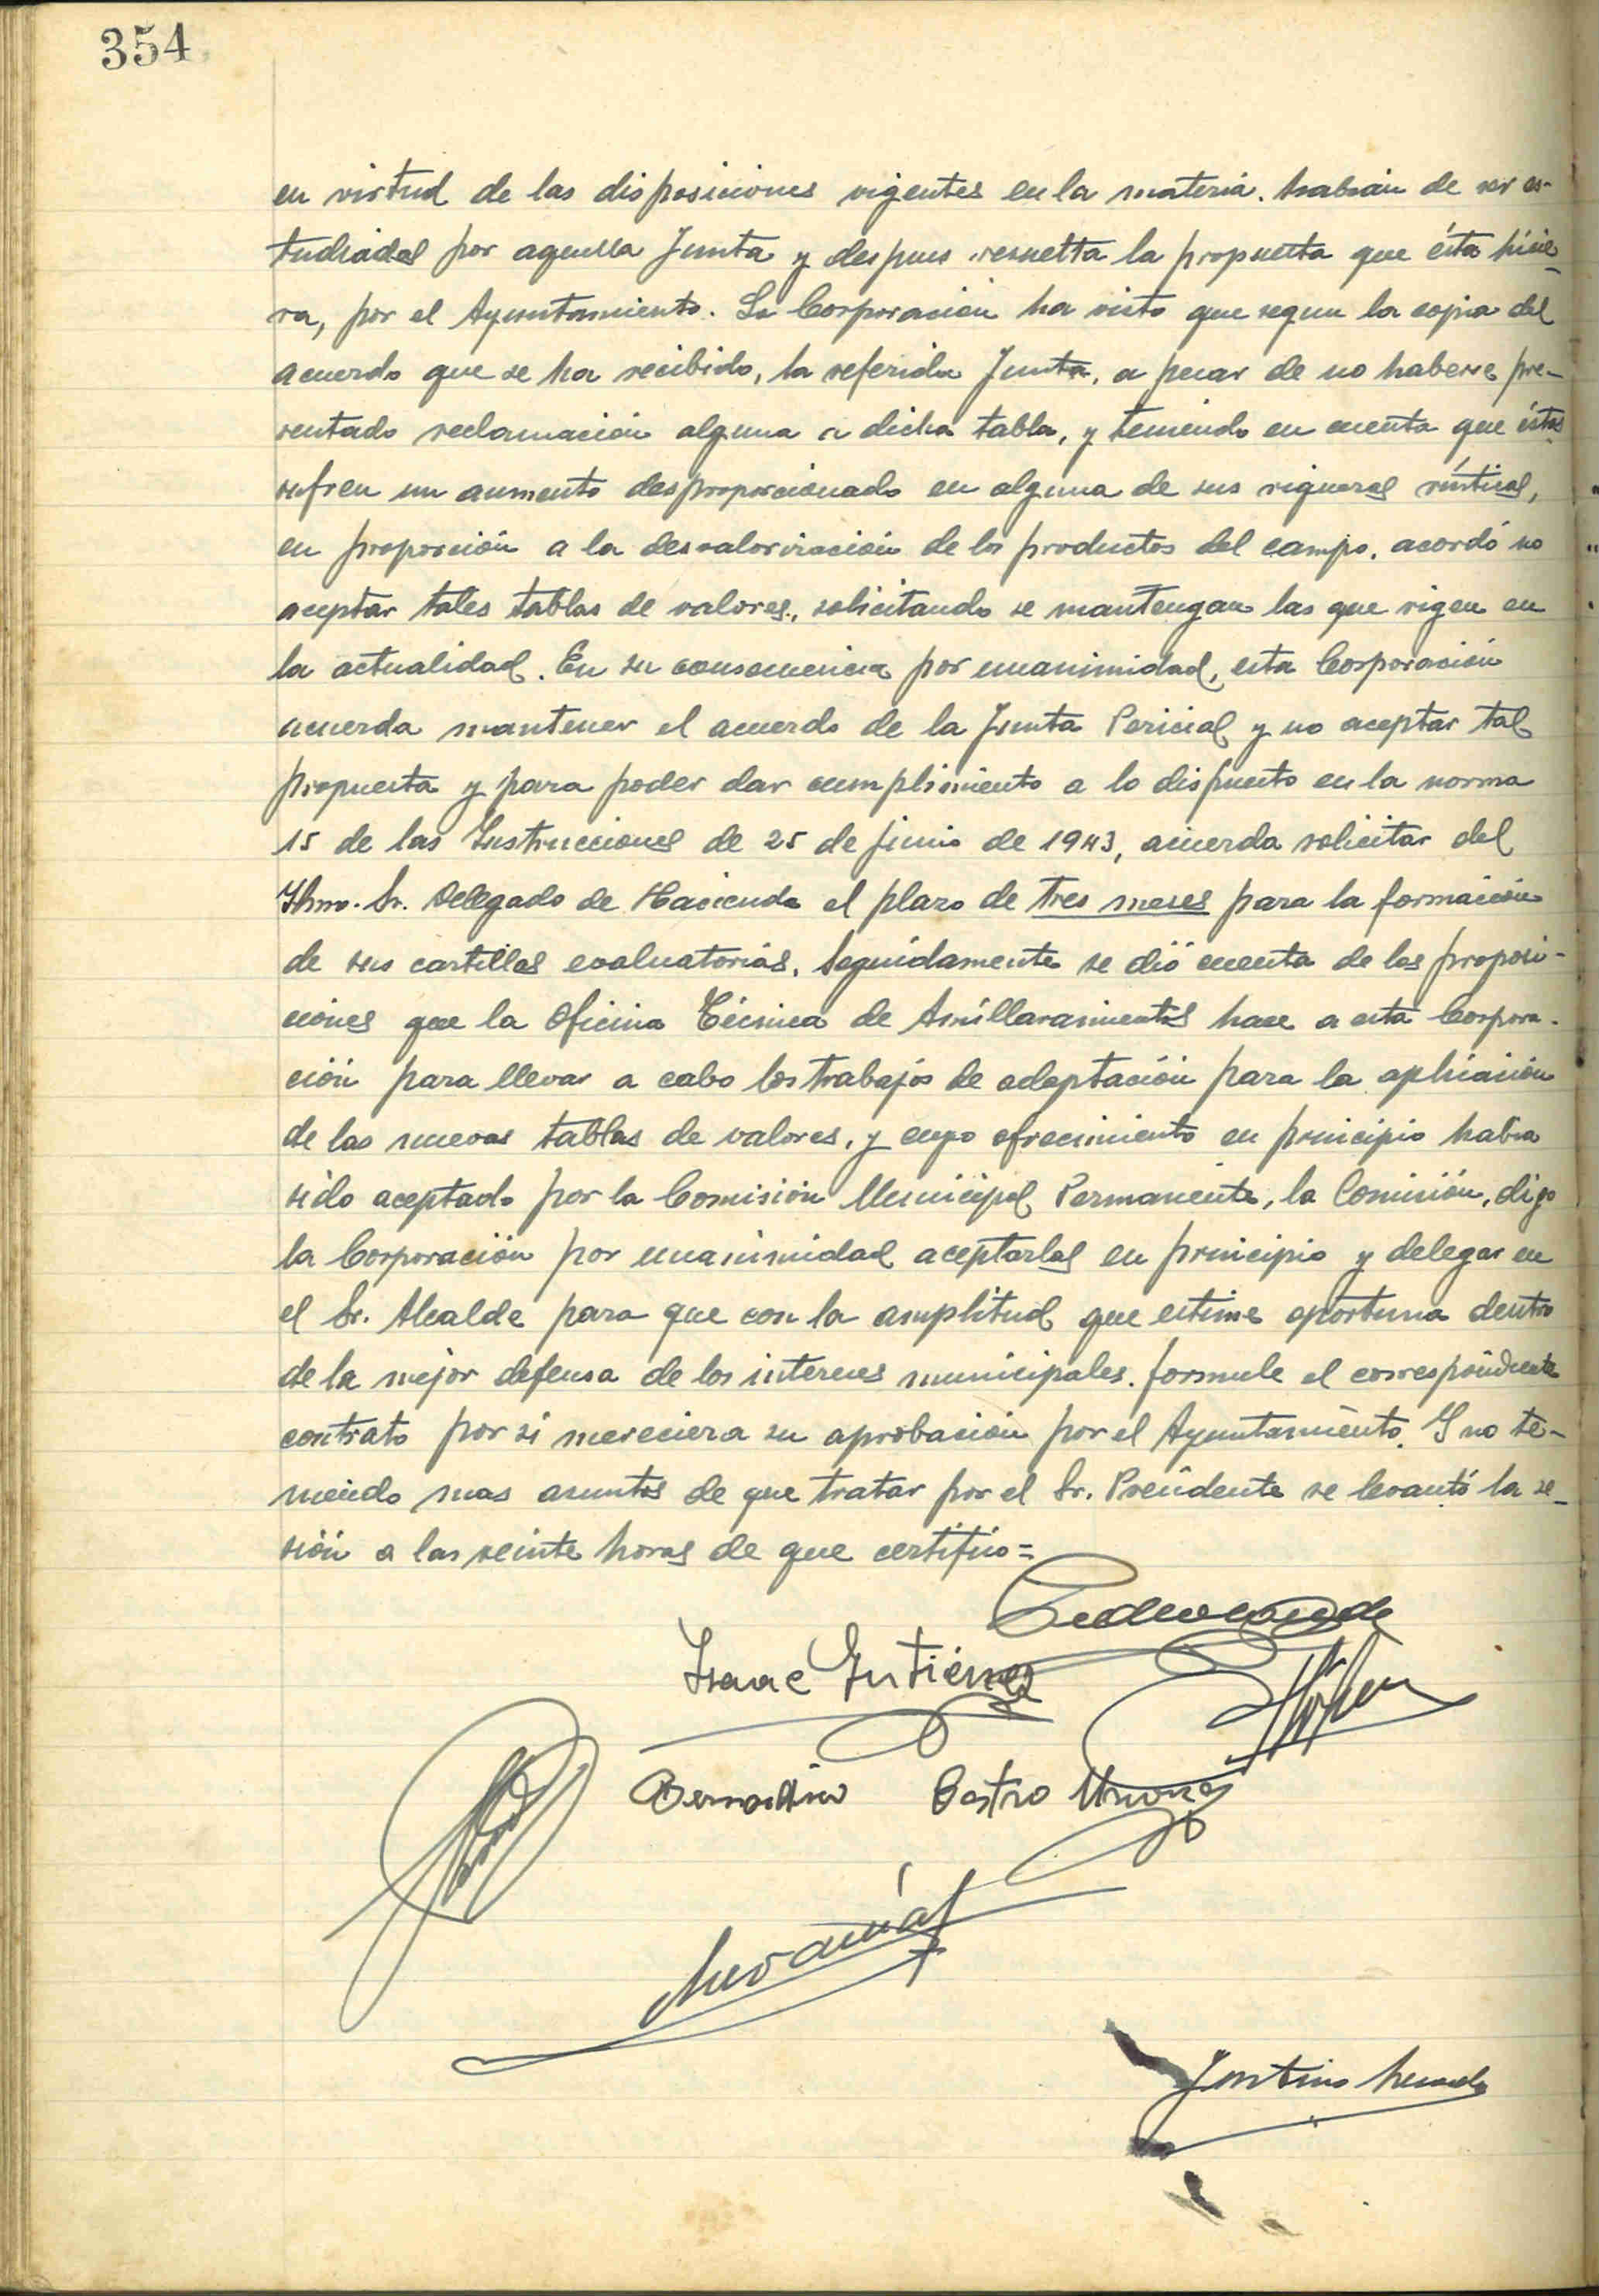 354
en virtud de las disposiciones vigentes en la materia. habían de ser es-
tudiadas por aquella Junta y despues resuelta la propuesta que ésta hicie-
ra, por el Ayuntamiento. La Corporación ha visto que segun la copia del
acuerdo que se ha recibido, la referida Junta, a pesar de no haberse pre-
sentado reclamación alguna a dicha tabla, y teniendo en cuenta que éstas
sufren un aumento desproporcionado en alguna de sus riquezas rústicas,
en proporción a la desvalorización de los productos del campo, acordó no
aceptar tales tablas de valores, solicitando se mantengan las que rigen en
la actualidad. En su consecuencia por unanimidad, esta Corporación
acuerda mantener el acuerdo de la Junta Pericial y no aceptar tal
propuesta y para poder dar cumplimiento a lo dispuesto en la norma
15 de las Instrucciones de 25 de junio de 1943, acuerda solicitar del
Iltmo. Sr. Delegado de Hacienda el plazo de tres meses para la formación
de sus cartillas evaluatorias. Seguidamente se dió cuenta de las proposi-
ciones que la Oficina Técnica de Amillaramientos hace a esta Corpora-
ción para llevar a cabo los trabajos de adaptación para la aplicación
de las nuevas tablas de valores, y cuyo ofrecimiento en principio habia
sido aceptado por la Comisión Municipal Permanente, la Comisión, digo
la Corporación por unanimidad aceptarlas en principio y delegar en
el Sr. Alcalde para que con la amplitud que estime oportuna dentro
de la mejor defensa de los intereses municipales. formule el correspondiente
contrato por si mereciera su aprobación por el Ayuntamiento. Y no te-
niendo mas asuntos de que tratar por el Sr. Presidente se levantó la se-
sión a las veinte horas de que certifico=
Isaac Gutiérrez
Bernardino Castro
Justino